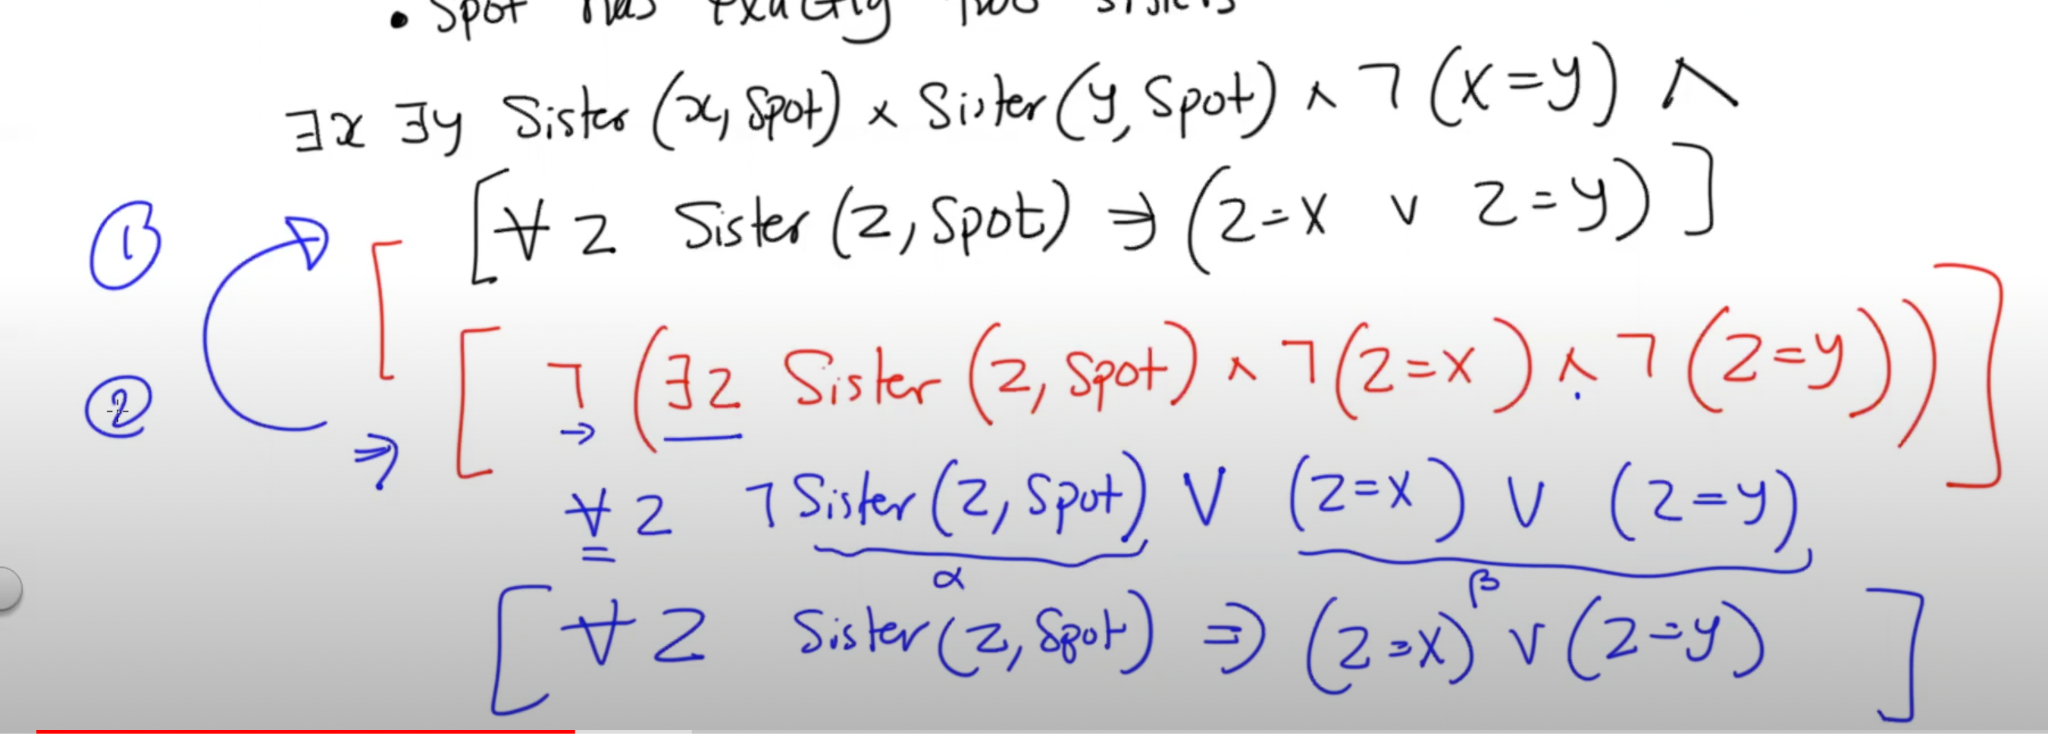 • Spot has exactly two sisters
∃x ∃y Sister (x, Spot) ∧ Sister (y, Spot) ∧ ¬ (x=y) ∧
[∀ z Sister (z, Spot) ⇒ (z=x ∨ z=y)]
①
[
[ ¬ (∃z Sister (z, Spot) ∧ ¬(z=x) ∧ ¬(z=y))]
②
→
⇒
∀ z ¬Sister (z, Spot) ∨ (z=x) ∨ (z=y)
α β
[∀ z Sister (z, Spot) ⇒ (z=x) ∨ (z=y) ]